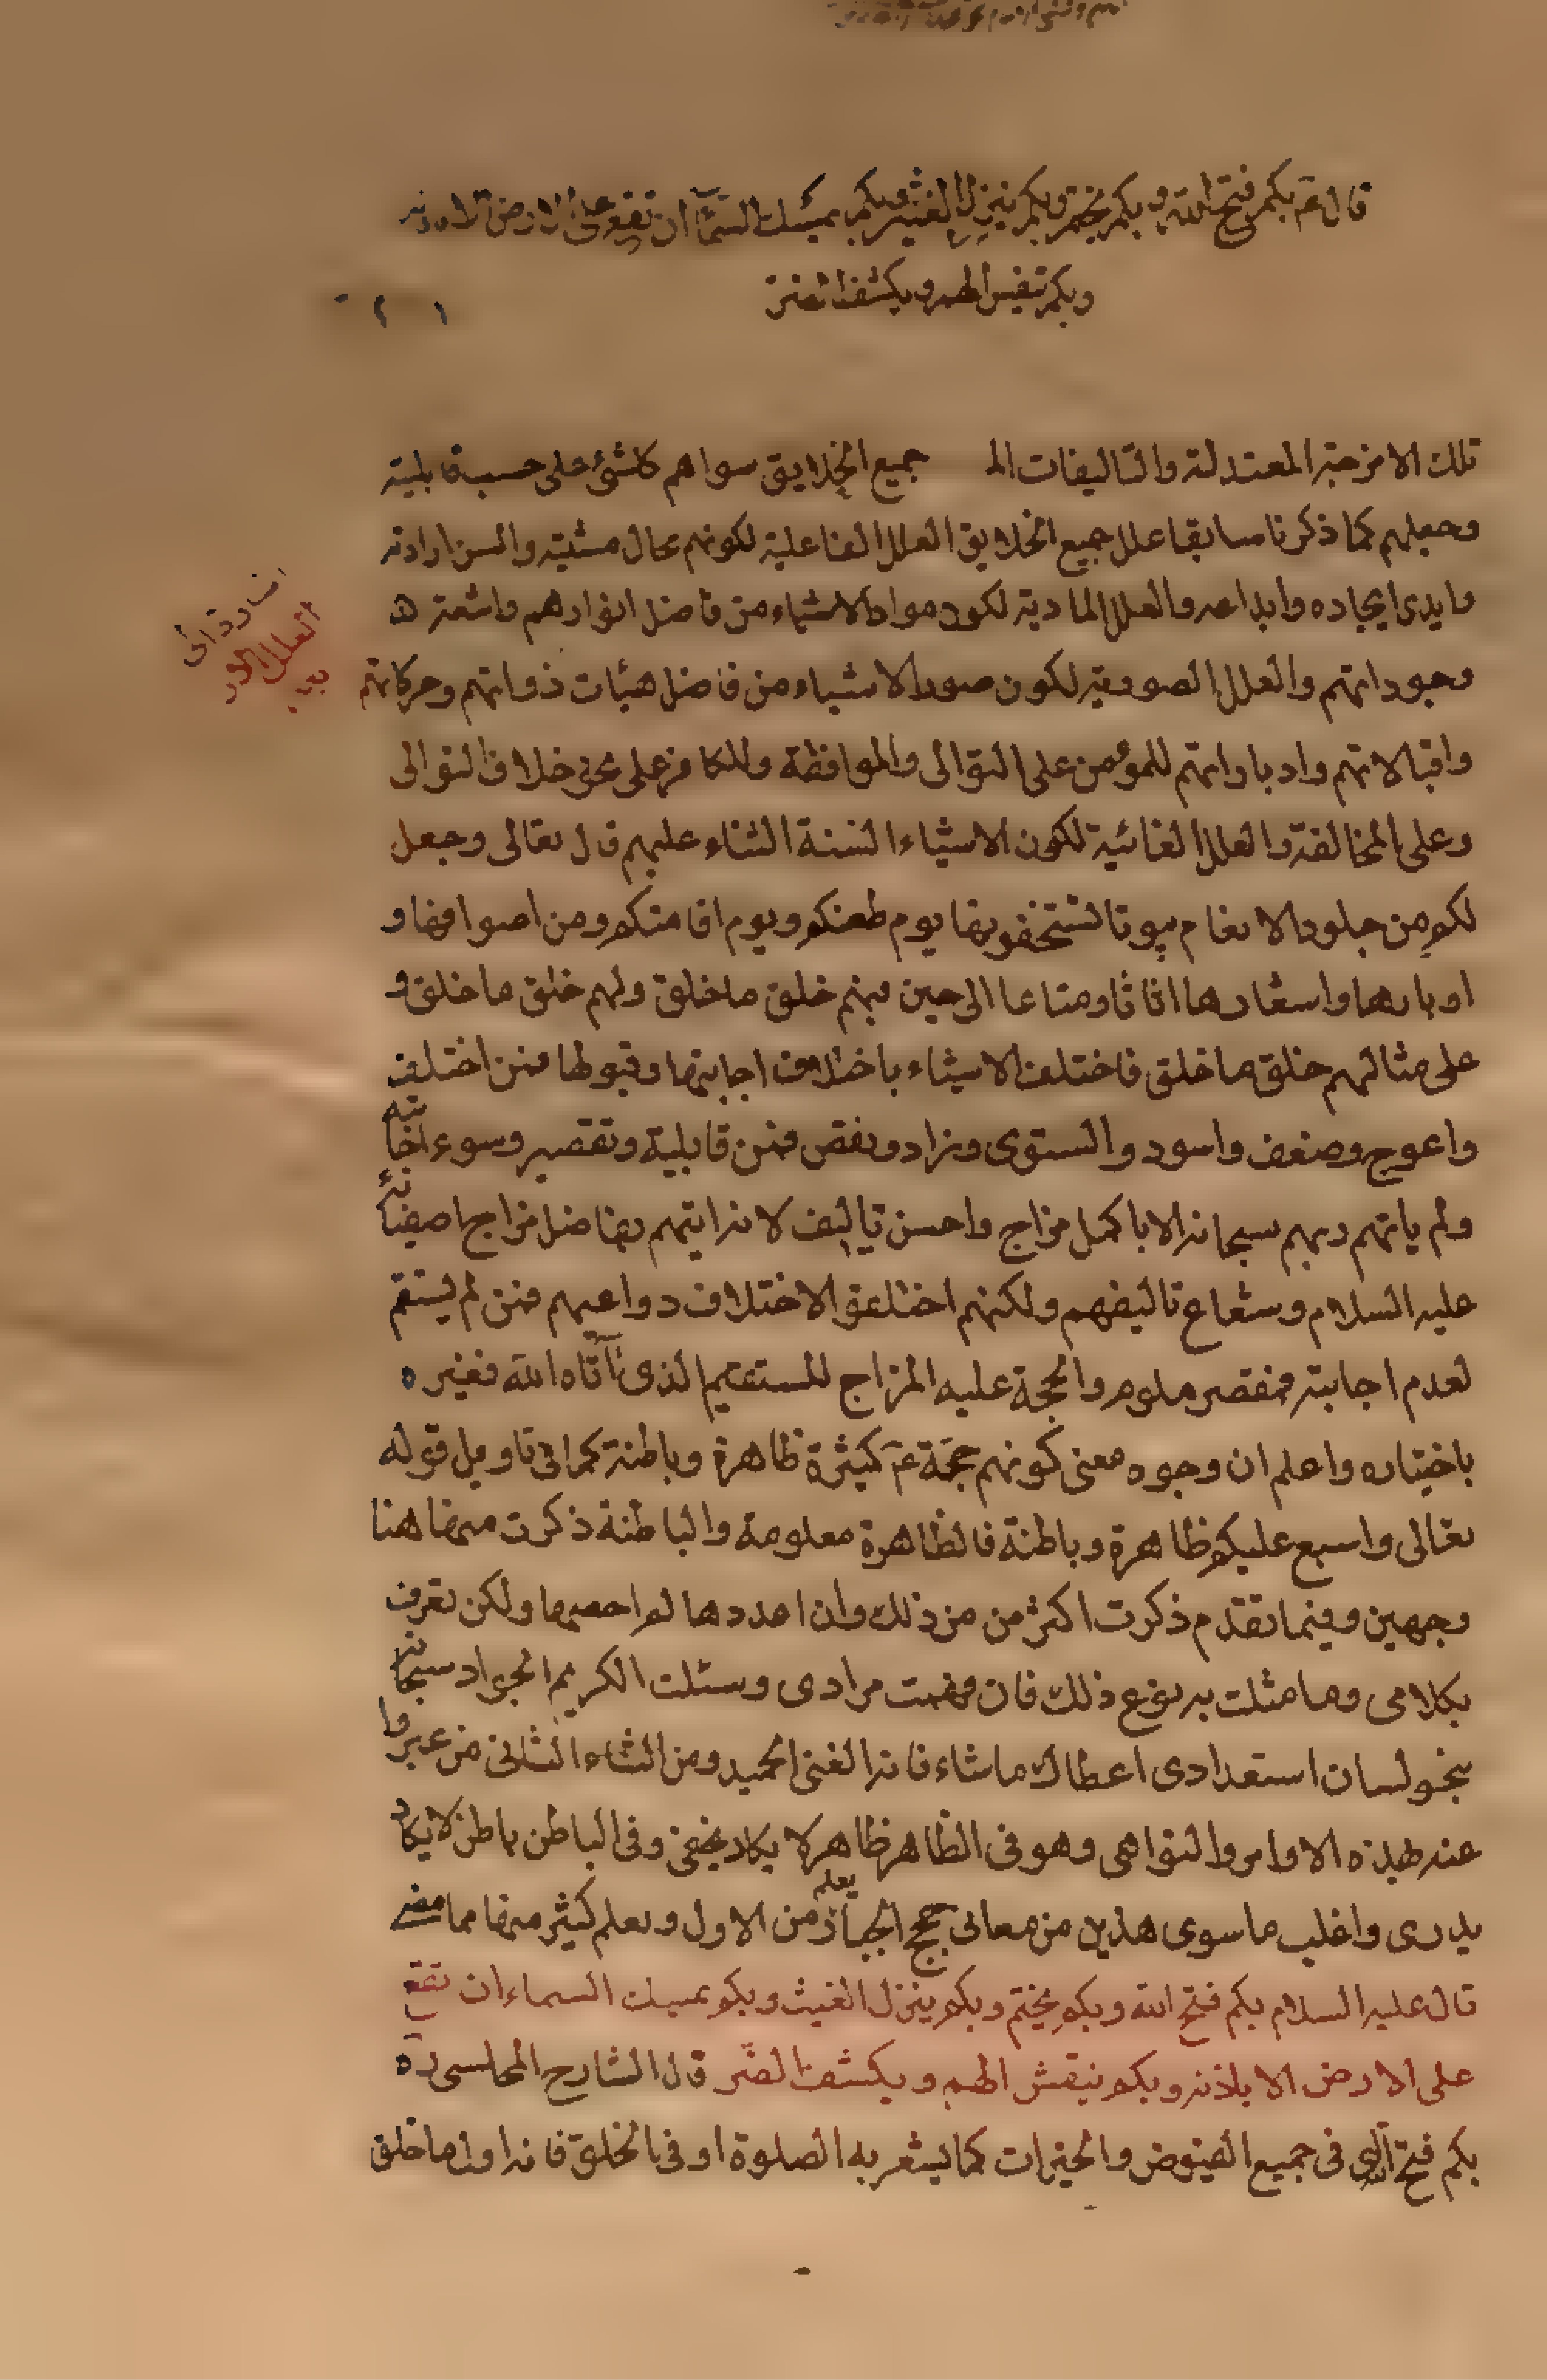 قال ع بكم فتح الله و بكم يختم و بكم ينزل الغيث و بكم يمسك السمآ ان تقع على الارض الا باذنه
و بكم ينفس الهم و يكشف الضر
تلك الامزجة المعتدلة والتاليفات جميع الخلايق سواهم كلشئ على حسب قابليته
وجعلهم كما ذكرنا سابقا علل جميع الخلايق العلل الفاعلية لكونهم محال مشيته والسن ارادته
وايدى ايجاده وابداعه والعلل المادية لكون مواد الاشياء من فاضل انوارهم واشعة
وجوداتهم والعلل الصورية لكون صور الاشياء من فاضل هيئات ذواتهم وحركاتهم
واقبالاتهم وادباراتهم للمؤمن على التوالى والموافقة وللكافر على نحو خلاف التوالى
وعلى المخالفة والعلل الغائية لكون الاشياء السنة الثناء عليهم قال تعالى وجعل
لكم من جلود الانعام بيوتا تستخفونها يوم ظعنكم ويوم اقامتكم ومن اصوافها و
اوبارها واشعارها اثاثا ومتاعا الى حين فبهم خلق ما خلق ولهم خلق ما خلق و
على مثالهم خلق ما خلق فاختلف الاشياء باختلاف اجابتها وقبولها فمن اختلف
واعوج وضعف واسود والستوى وزاد ونقص فمن قابلية وتقصير وسوء اجابته
ولم ياتهم ربهم سبحانه الا باكمل مزاج واحسن تاليف لانه ايتهم بفاضل مزاج اصفيائه
عليه السلام وشعاع تاليفهم ولكنهم اختلفوا لاختلاف دواعيهم فمن لم يستقم
لعدم اجابته فمقصر ملوم والحجة عليه المزاج المستقيم الذى اتاه الله فغيره
باختياره واعلم ان وجوه معنى كونهم حجة ع كثيرة ظاهرة وباطنة كما فى تاويل قوله
تعالى واسبع عليكم ظاهرة وباطنة فالظاهرة معلومة والباطنة ذكرت منها هنا
وجهين وفيما تقدم ذكرت اكثر من من ذلك وان اعددها لم احصها ولكن تعرف
بكلامى وما مثلت به نوع ذلك فان فهمت مرادى وسئلت الكريم الجواد سبحانه
بنحو لسان استعدادى اعطاك ماشاء فانه الغنى الحميد ومن الثناء الثانى من عبروا
عنه طهذه الاوامر والنواهى وهو فى الظاهر ظاهر لا يكاد يخفى وفى الباطن باطن لا يكاد
يدرى واغلب ما سوى هذين من معانى حجج الجبار يعلم من الاول ويعلم كثير منها مما مضى
قال عليه السلام بكم فتح الله وبكم يختم وبكم ينزل الغيث وبكم يمسك السماء ان تقع
على الارض الا باذنه وبكم ينفس الهم ويكشف الضر قال الشارح المجلسى ره
بكم فتح الله فى جميع الفيوض والخيرات كما يشعر به الصلوة او فى الخلق فانه اول ما خلق